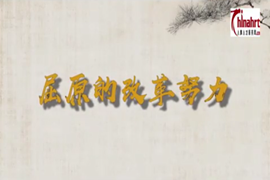 Chinahrt
屈原的改革努力